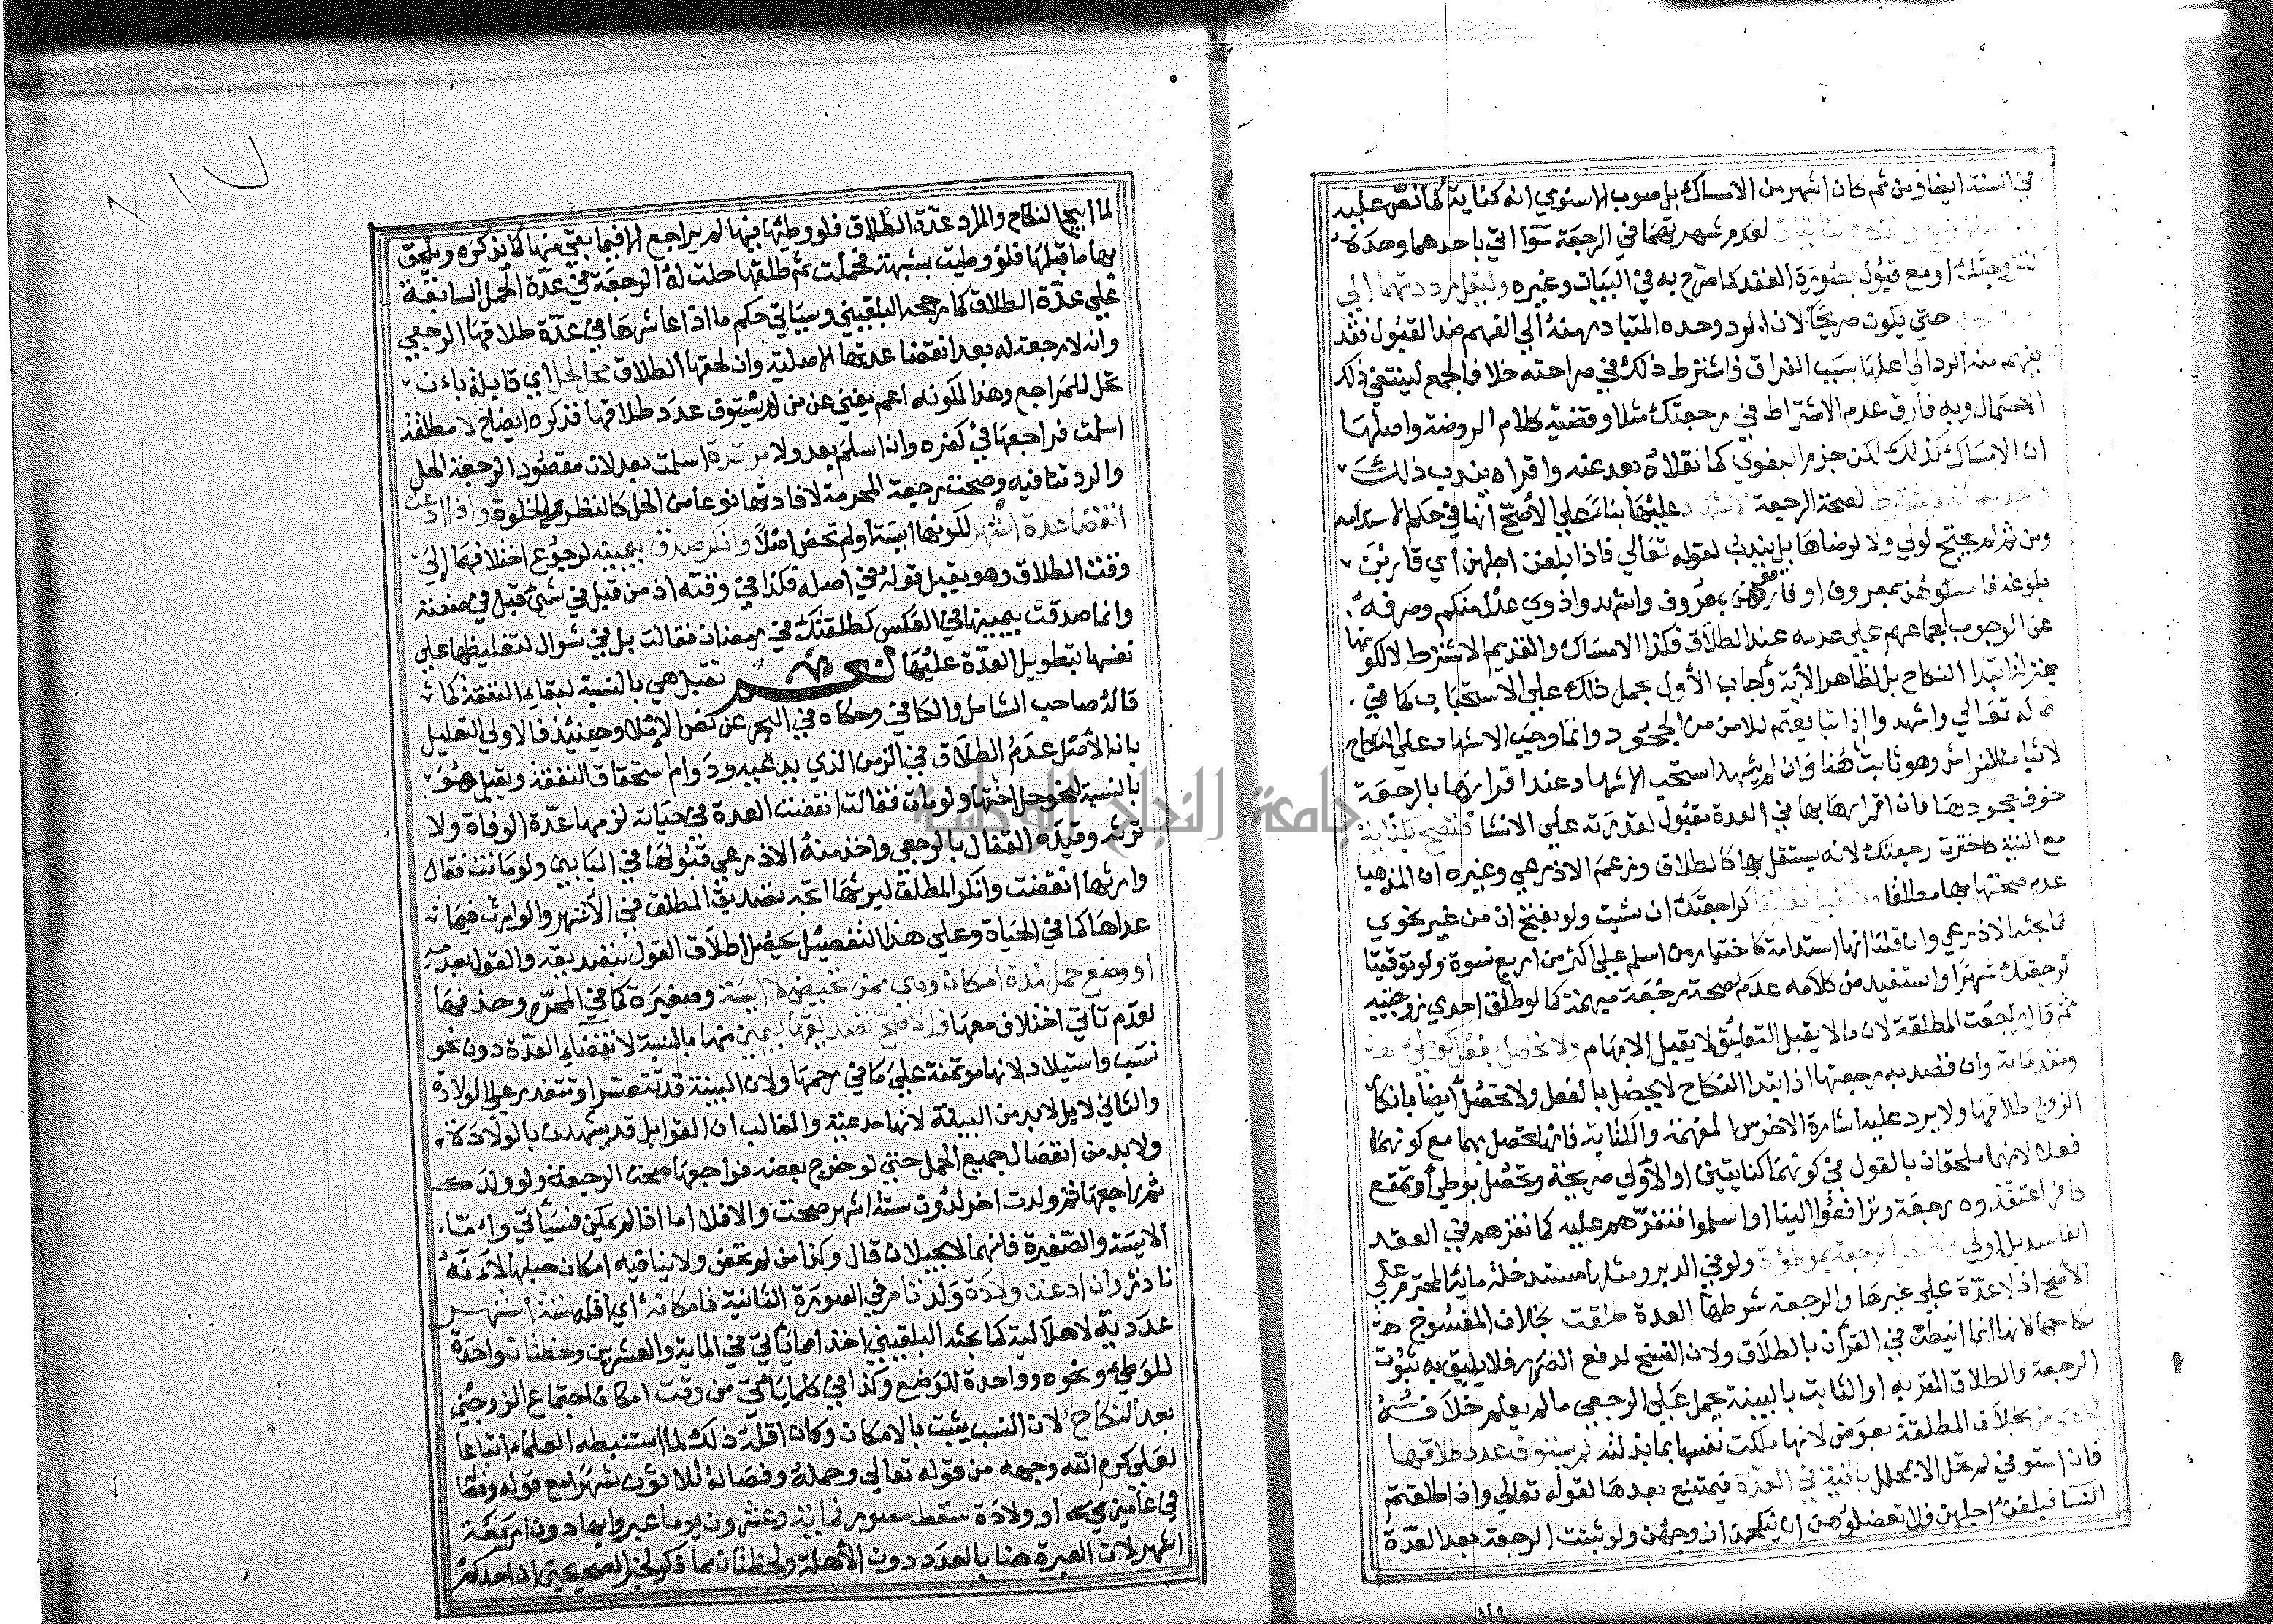 في السنة ايضا ومن ثم كان اشهر من الامساك بل صوب الاسنوي انه كناية كما نص عليه
لعدم شهرتهما في الرجعة سوا اتي باحدهما وحده
او مع قبول بصورة العقد كما صرح به في البيان وغيره وليقل رددتها الي
حتي يكون صريحا لان الرد وحده المتبادر منه الي الفهم ضد القبول فقد
يفهم منه الرد الي اهلها بسبب الفراق فاشترط ذلك في صراحته خلافا لجمع لينتفي ذلك
الاحتمال وبه فارق عدم الاشتراط في رجعتك مثلا وقضية كلام الروضة واصلها
ان الامساك كذلك لكن جزم البغوي كما نقلاه بعد عنه واقراه بندب ذلك
لصحة الرجعة الاشهاد عليها بنا علي الأصح انها في حكم الاستدامة
ومن ثم لم يحتج لولي ولا لرضاها بل يندب لقوله تعالي فاذا بلغن اجلهن أي قاربن
بلوغه فامسكوهن بمعروف او فارقوهن بمعروف واشهدوا ذوي عدل منكم وصرفه
عن الوجوب اجماعهم علي عدمه عند الطلاق فكذا الامساك والقديم الاشتراط لا لكونها
بمنزلة ابتدا النكاح بل لظاهر الأية وأجاب الأول بحمل ذلك علي الاستحباب كما في
قوله تعالي واشهدوا إذا تبايعتم للامن من الجحود وانما وجب الاشهاد علي النكاح
لاثبات الفراش وهو ثابت هنا فان لم يشهد استحب الإشهاد عند اقرارها بالرجعة
خوف جحودها فان اقرارها بها في العدة مقبول لقدرته علي الانشا فتصح بكناية
مع النية كاخترت رجعتك لانه يستقل بها كالطلاق وزعم الاذرعي وغيره ان المذهب
عدم صحتها بها مطلقا ولا تقبل تعليقا كراجعتك ان شيت ولو بفتح ان من غير نحوي
كما بحثه الاذرعي وان قلنا انها استدامة كاختيار من اسلم علي اكثر من اربع نسوة ولو توقيتا
كرجعتك شهرا واستفيد من كلامه عدم صحة رجعة مبهمة كما لو طلق احدي زوجتيه
ثم قال راجعت المطلقة لان ما لا يقبل التعليق لا يقبل الابهام ولا تحصل بفعل كوطئ
ومقدماته وان قصد به رجعتها اذ ابتدا النكاح لا يحصل بالفعل ولا تحصل أيضا بانكار
الزوج طلاقها ولا يرد عليه اشارة الاخرس المفهمة والكتابة فانها تحصل بهما مع كونهما
فعلا لانهما ملحقان بالقول في كونهما كنايتين او الأولي صريحة وتحصل بوطئ أو تمتع
كافر اعتقدوه رجعة وترافعوا الينا او اسلموا فنقرهم عليه كما نقرهم في العقد
الفاسد بل اولي وتختص الرجعة بموطؤة ولو في الدبر ومثلها مستدخلة مايه المحترم علي
الأصح اذ لا عدة علي غيرها والرجعة شرطها العدة طلقت بخلاف المفسوخ
نكاحها لانها انما انيطت في القرأن بالطلاق ولان الفسخ لدفع الضرر فلا يليق به ثبوت
الرجعة والطلاق المقر به او الثابت بالبينة يحمل علي الرجعي ما لم يعلم خلافه
بلا عوض بخلاف المطلقة بعوض لانها ملكت نفسها بما بذلته لم يستوف عدد طلاقها
فان استوفي لم تحل الا بمحلل باقية في العدة فيمتنع بعدها لقوله تعالي واذا طلقتم
النسا فبلغن اجلهن فلا تعضلوهن ان ينكحن ازوجهن ولو ثبتت الرجعة بعد العدة
لما ابيح النكاح والمراد عدة الطلاق فلو وطيها فيها لم يراجع الا فيما بقي منها كما يذكره ويلحق
بها ما قبلها فلو وطيت بشبهة فحملت ثم طلقها حلت له الرجعة في عدة الحمل السابقة
علي عدة الطلاق كما رجحه البلقيني وسياتي حكم ما اذا عاشرها في عدة طلاقها الرجعي
وانه لا رجعة له بعد انقضا عدتها الاصلية وان لحقها الطلاق محل لحل اي قابلة بان
تحل للمراجع وهذا لكونه اعم يغني عن من لم يستوف عدد طلاقها فذكره ايضاح لا مطلقة
اسلمت فراجعها في كفره وان اسلم بعد ولا مرتدة اسلمت بعد لان مقصود الرجعة الحل
والرد تنافيه وصحت رجعة المحرمة لافادتها نوعا من الحل كالنظر والخلوة واذا ادعت
انقضا عدة اشهر لكونها ايسة او لم تحض اصلا وانكر صدق بيمينه لرجوع اختلافهما إلي
وقت الطلاق وهو يقبل قوله في اصله فكذا في وقته اذ من قبل في شئ قبل في صفته
وانما صدقت بيمينها في العكس كطلقتك في رمضان فقالت بل في شوال لتغليظها علي
نفسها بتطويل العدة عليها نعم تقبل هي بالنسبة لبقاء النفقة كما
قاله صاحب الشامل والكافي وحكاه في البحر عن نص الإملا وحينئذ فالاولي التعليل
بانه الأصل عدم الطلاق في الزمن الذي يدعيه ودوام استحقاق النفقة ويقبل هو
بالنسبة لنحو حل اختها ولو مات فقالت انقضت العدة في حياته لزمها عدة الوفاة ولا
ترثه وقيده القفال بالرجعي واخذ منه الاذرعي قبولها في البائن ولو ماتت فقال
وارثها انقضت وانكر المطلق ليرثها اتجه تصديق المطلق في الأشهر والوارث فيما
عداها كما في الحياة وعلي هذا التفصيل يحمل اطلاق القول بتصديقه والقول بعدمه
او وضع حمل لمدة امكان وهي ممن تحيض لا ايسة وصغيرة كما في المحرر وحذفهما
لعدم تاتي اختلاف معها فالاصح تصديقها بيمين منها بالنسبة لانقضاء العدة دون نحو
نسب واستيلاد لانها موتمنة علي ما في رحمها ولان البينة قد تتعسر او تتعذر علي الولادة
والثاني لا بل لا بد من البينة لانها مدعية والغالب ان القوابل قد يشهدن بالولادة
ولا بد من انفصال جميع الحمل حتي لو خرج بعضه فراجعها صحت الرجعة ولو ولدت
ثم راجعها ثم ولدت اخر لدون ستة اشهر صحت والا فلا اما اذا لم يمكن فسيأتي واما
الايسة والصغيرة فانهما لا يحبلان قال وكذا من لم تحض ولا ينافيه امكان حبلها لانه
نادر وان ادعت ولادة ولد تام في الصورة الثانية فامكانه اي اقله ستة اشهر
عددية لا هلالية كما بحثه البلقيني اخذا مما ياتي في الماية والعشرين ولحظتان واحدة
للوطئ ونحوه وواحدة للوضع وكذا في كلما يأتي من وقت امكان اجتماع الزوجين
بعد النكاح لان النسب يثبت بالامكان وكان اقله ذلك لما استنبطه العلما اتباعا
لعلي كرم الله وجهه من قوله تعالي وحمله وفصاله ثلاثون شهرا مع قوله وفصاله
في عامين او ولادة سقط مصور فماية وعشرون يوما عبروا بها دون اربعة
اشهر لان العبرة هنا بالعدد دون الأهلة ولحظتان مما ذكر لخبر الصحيحين ان احدكم